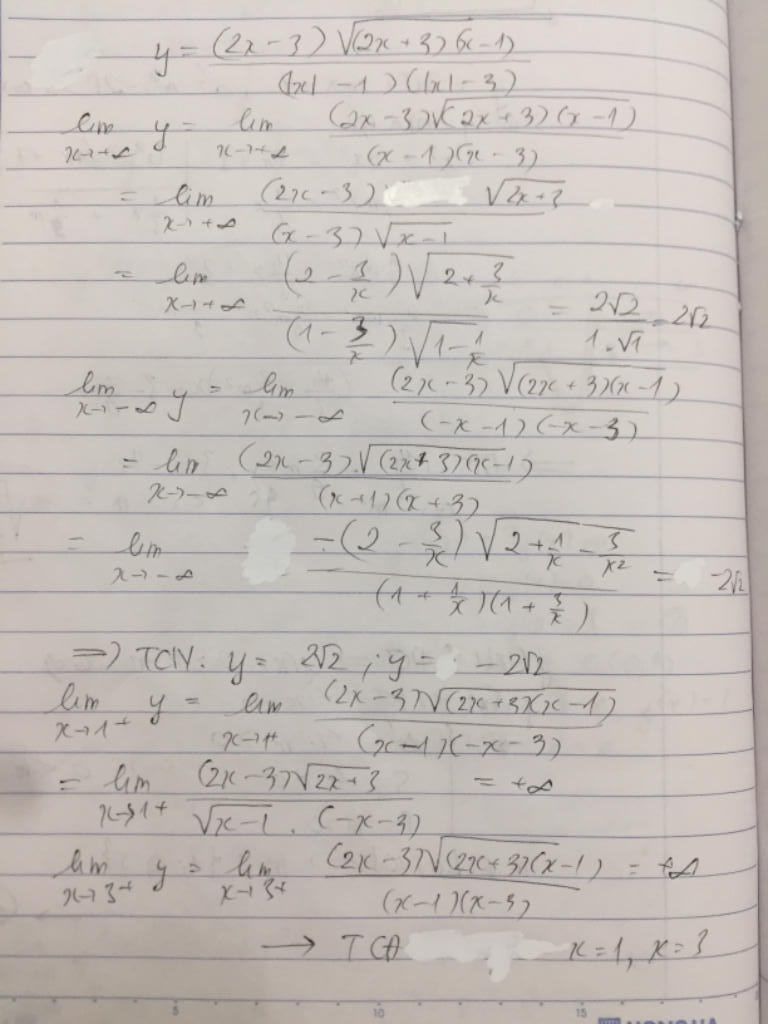 y = (2x-3)√((2x+3)(x-1)) / (|x|-1)(|x|-3)
lim x→+∞ y = lim x→+∞ (2x-3)√((2x+3)(x-1)) / (x-1)(x-3)
= lim x→+∞ (2x-3) √(2x+3) / (x-3)√(x-1)
= lim x→+∞ (2 - 3/x)√(2 + 3/x) / (1 - 3/x)√(1 - 1/x) = 2√2 / 1.√1 = 2√2
lim x→-∞ y = lim x→-∞ (2x-3)√((2x+3)(x-1)) / (-x-1)(-x-3)
= lim x→-∞ (2x-3).√((2x+3)(x-1)) / (x+1)(x+3)
= lim x→-∞ -(2 - 3/x)√(2 + 1/x - 3/x²) / (1 + 1/x)(1 + 3/x) = -2√2
=> TCN: y = 2√2 ; y = -2√2
lim x→1⁺ y = lim x→1⁺ (2x-3)√((2x+3)(x-1)) / (x-1)(-x-3)
= lim x→1⁺ (2x-3)√(2x+3) / √(x-1) . (-x-3) = +∞
lim x→3⁺ y = lim x→3⁺ (2x-3)√((2x+3)(x-1)) / (x-1)(x-3) = +∞
→ TCĐ x=1, x=3
5 10 15